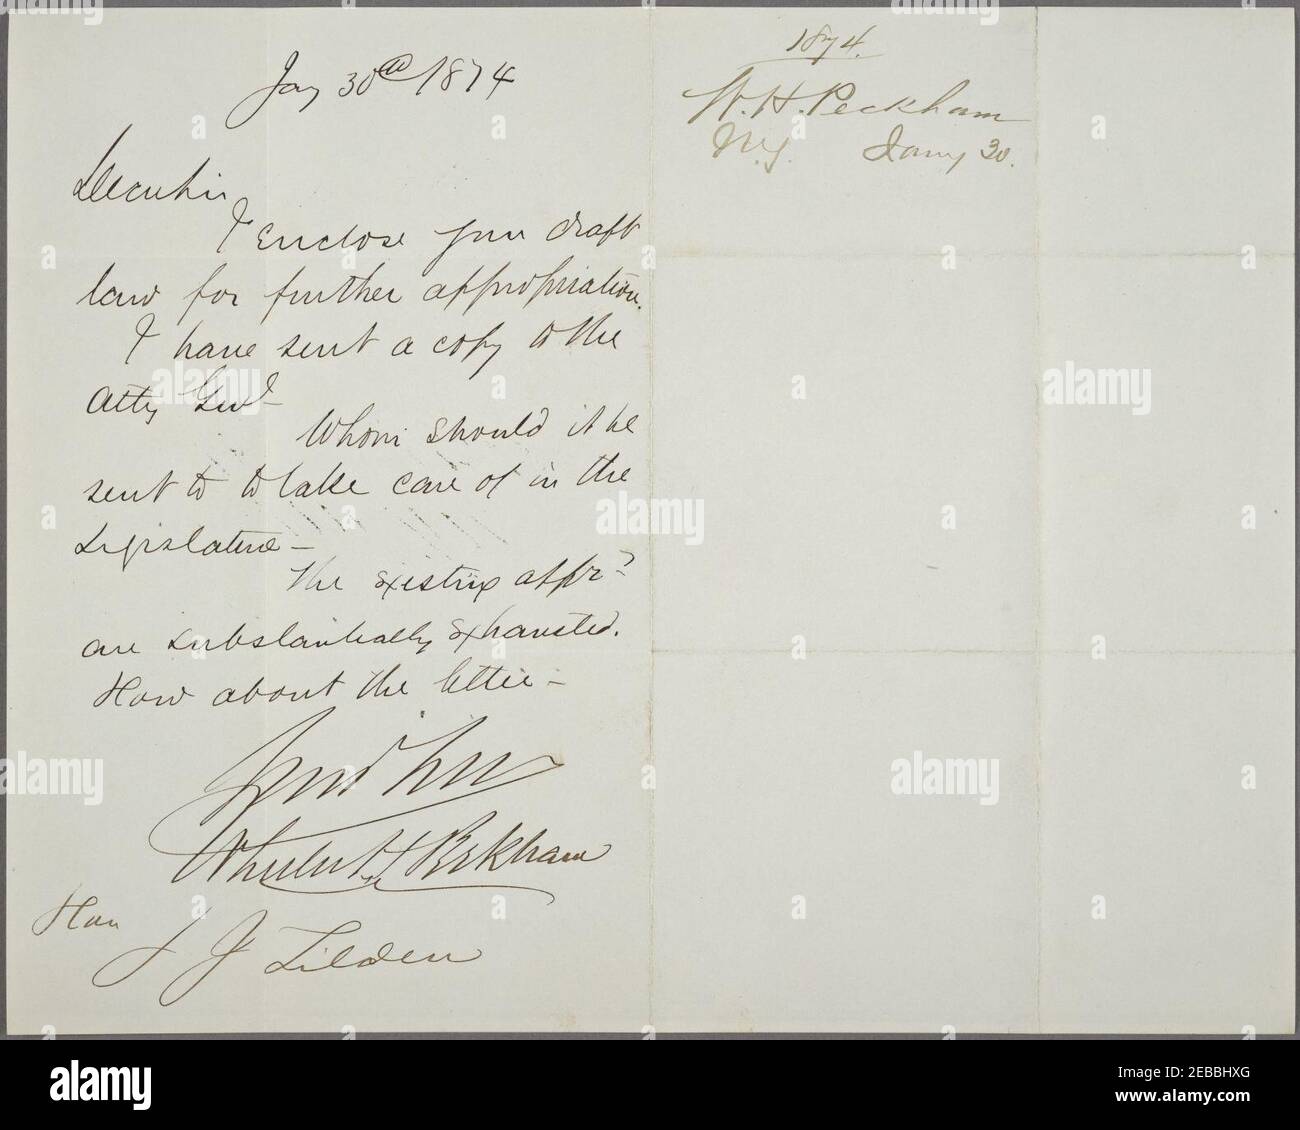 Jay 30th 1874
Dear Sir
I enclose you draft
law for further appropriation.
I have sent a copy to the
Atty Genl
Whom should it be
sent to to take care of in the
Legislature —
The existing appr?
are substantially exhausted.
How about the letter —
Yours truly
Wheeler H Peckham
Hon
S J Tilden
1874.
W. H. Peckham
N.Y. Jany 30.
alamy
Image ID: 2EBBHXG
www.alamy.com